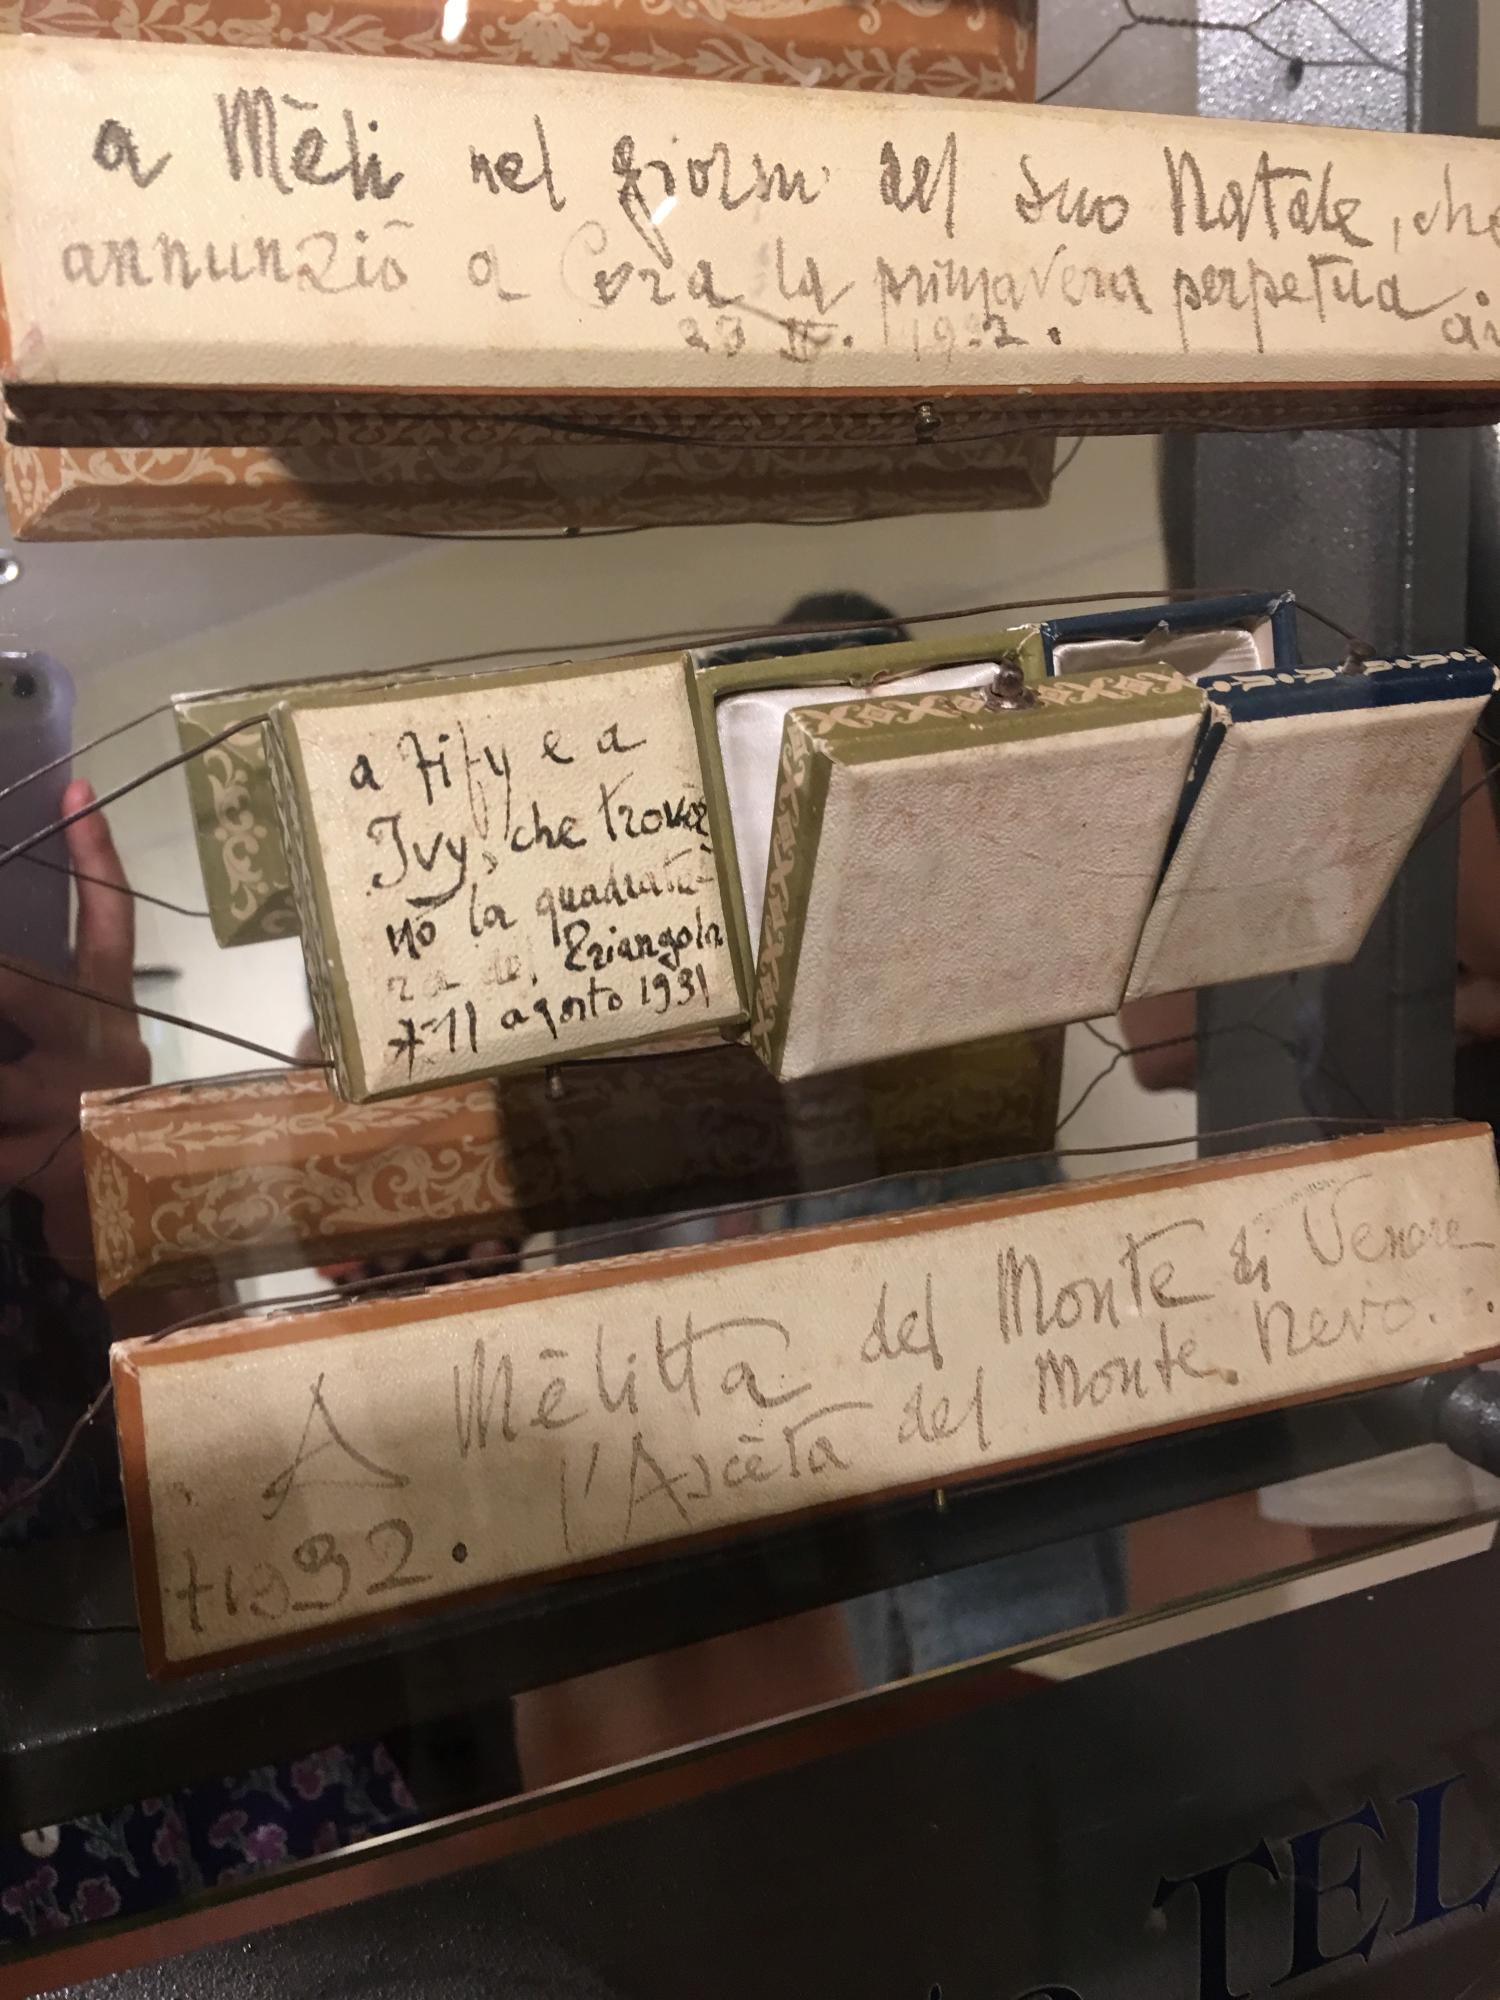 a Mēli nel giorno del suo Natale, che
annunziò a Cora la primavera perpetua.
1932.
a Fify e a
Jvy, che trova
no la quadratu
ra del Triangolo
11 agosto 1931
A Mēlitta del Monte di Venere
l'Ascēta del Monte Nevo.
†1932.
TEL